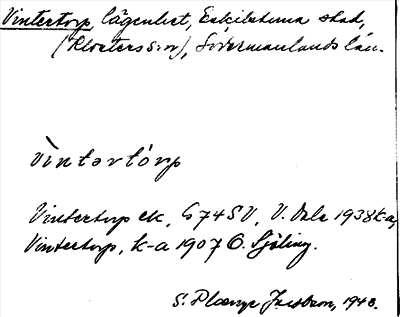 Vintertorp lägenhet, Eskilstuna stad,
(Klosters sn), Södermanlands län.
vìntərtórp
Vintertorp ek, G74SV, V. Dals 1938 k-a,
Vintertorp, k-a 1907 O. Sjöling.
S. 1943.